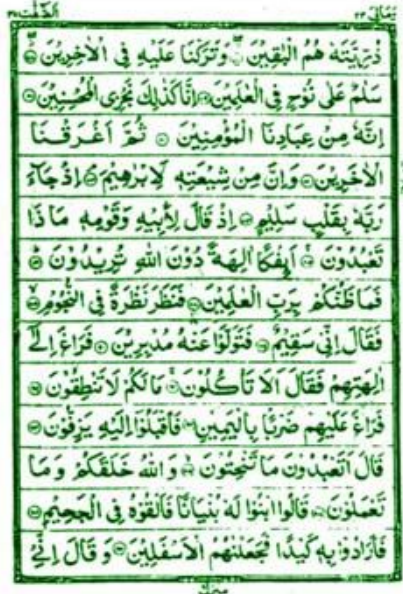 وَمَالِیَ ٢٣ الصّٰٓفّٰت ٣٧
ذُرِّيَّتَهٗ هُمُ الْبٰقِيْنَ ۝ وَتَرَكْنَا عَلَيْهِ فِي الْاٰخِرِيْنَ ۝
سَلٰمٌ عَلٰى نُوْحٍ فِي الْعٰلَمِيْنَ ۝ اِنَّا كَذٰلِكَ نَجْزِي الْمُحْسِنِيْنَ ۝
اِنَّهٗ مِنْ عِبَادِنَا الْمُؤْمِنِيْنَ ۝ ثُمَّ اَغْرَقْنَا
الْاٰخَرِيْنَ ۝ وَاِنَّ مِنْ شِيْعَتِهٖ لَاِبْرٰهِيْمَ ۝ اِذْ جَآءَ
رَبَّهٗ بِقَلْبٍ سَلِيْمٍ ۝ اِذْ قَالَ لِاَبِيْهِ وَقَوْمِهٖ مَاذَا
تَعْبُدُوْنَ ۝ اَئِفْكًا اٰلِهَةً دُوْنَ اللّٰهِ تُرِيْدُوْنَ ۝
فَمَا ظَنُّكُمْ بِرَبِّ الْعٰلَمِيْنَ ۝ فَنَظَرَ نَظْرَةً فِي النُّجُوْمِ ۝
فَقَالَ اِنِّيْ سَقِيْمٌ ۝ فَتَوَلَّوْا عَنْهُ مُدْبِرِيْنَ ۝ فَرَاغَ اِلٰٓى
اٰلِهَتِهِمْ فَقَالَ اَلَا تَاْكُلُوْنَ ۝ مَا لَكُمْ لَا تَنْطِقُوْنَ ۝
فَرَاغَ عَلَيْهِمْ ضَرْبًا بِالْيَمِيْنِ ۝ فَاَقْبَلُوْٓا اِلَيْهِ يَزِفُّوْنَ ۝
قَالَ اَتَعْبُدُوْنَ مَا تَنْحِتُوْنَ ۝ وَاللّٰهُ خَلَقَكُمْ وَمَا
تَعْمَلُوْنَ ۝ قَالُوا ابْنُوْا لَهٗ بُنْيَانًا فَاَلْقُوْهُ فِي الْجَحِيْمِ ۝
فَاَرَادُوْا بِهٖ كَيْدًا فَجَعَلْنٰهُمُ الْاَسْفَلِيْنَ ۝ وَقَالَ اِنِّيْ